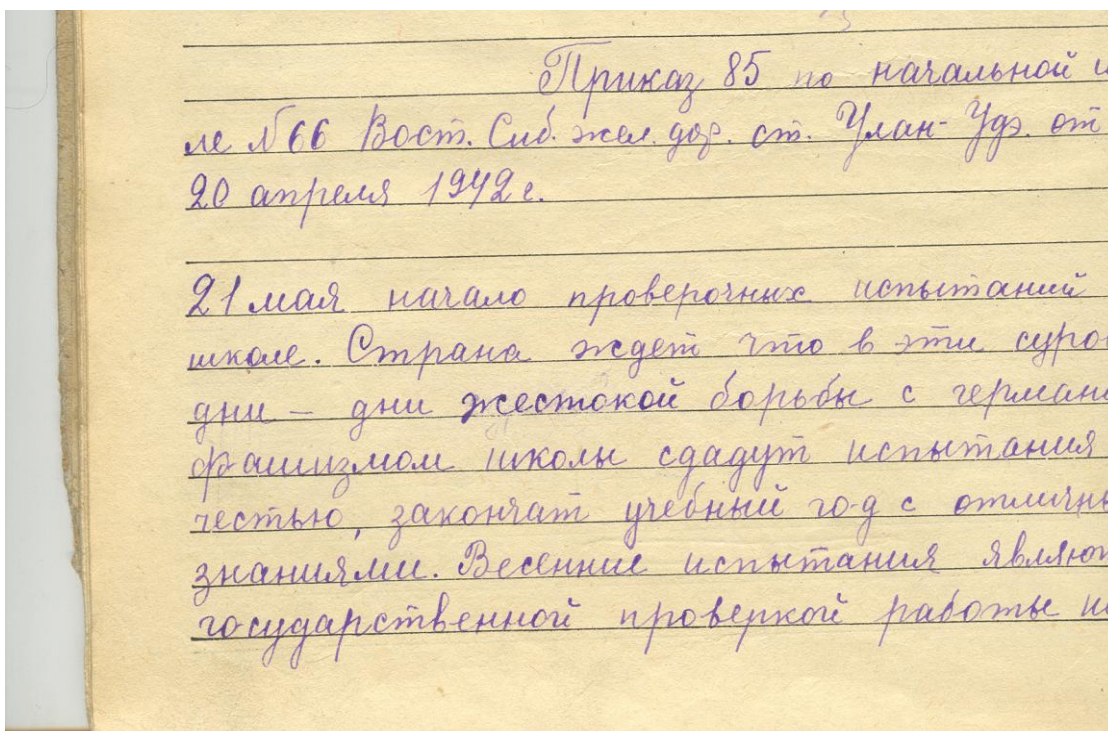 Приказ 85 по начальной ш
ле №66 Вост. Сиб. жел. дор. ст. Улан-Удэ. от
20 апреля 1942 г.
21 мая начало проверочных испытаний
школе. Страна ждет что в эти суро
дни – дни жестокой борьбы с германс
фашизмом школы сдадут испытания
честью, закончат учебный год с отличны
знаниями. Весенние испытания являют
государственной проверкой работы шк